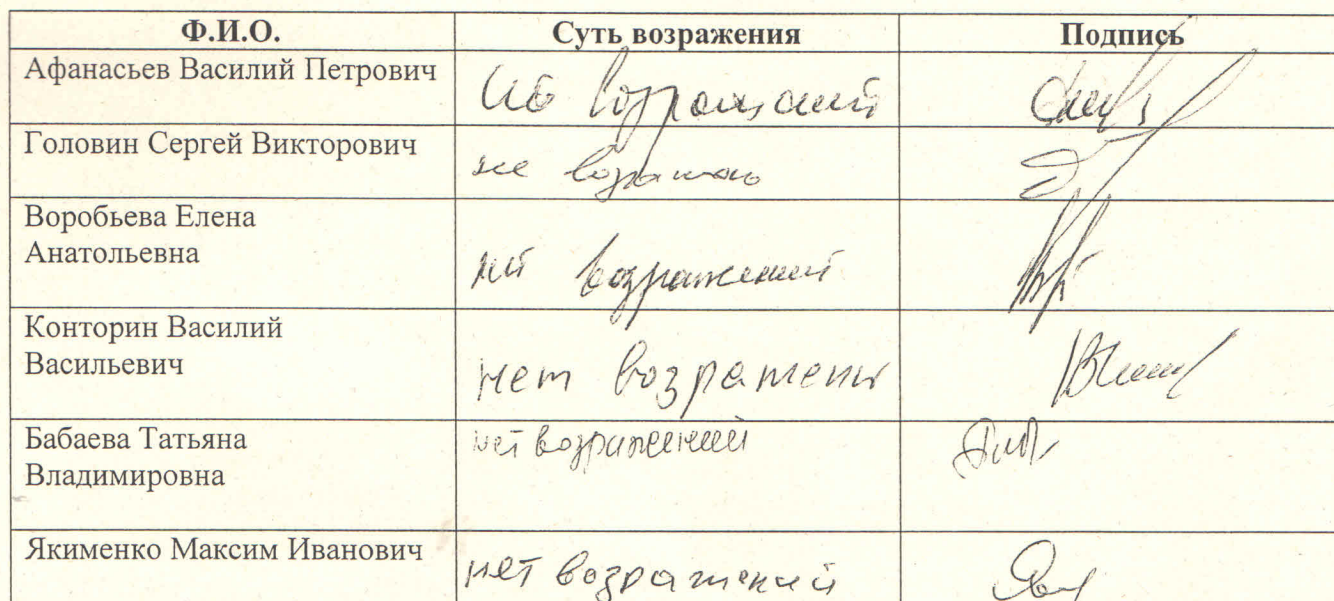 Ф.И.О. Суть возражения Подпись
Афанасьев Василий Петрович
нет возражений
Головин Сергей Викторович
не возражаю
Воробьева Елена
Анатольевна
нет возражений
Конторин Василий
Васильевич
нет возражений
Бабаева Татьяна
Владимировна
нет возражений
Якименко Максим Иванович
нет возражений